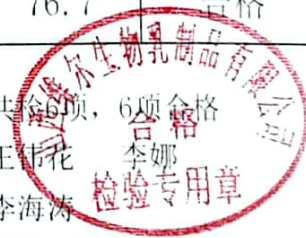 76.7 合格
共检6项，6项合格
王伟花 李娜
李海涛
维尔生物乳制品有限公司
合格
检验专用章